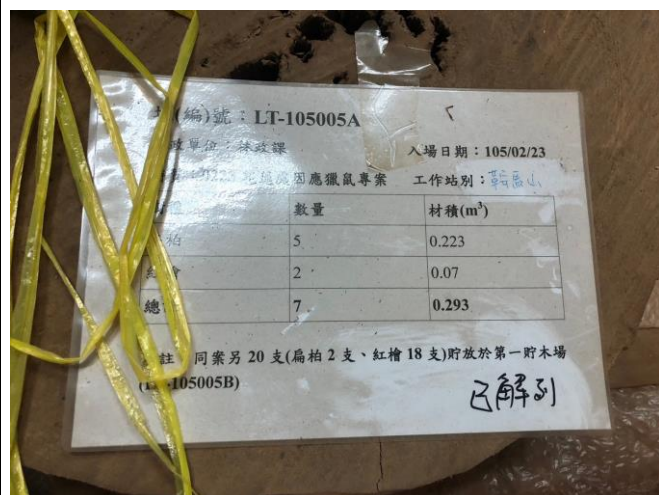 堆(編)號：LT-105005A
政單位：林政課
入場日期：105/02/23
因應獵鼠專案
工作站別：鞍馬山
數量 材積(m³)
柏 5 0.223
紅檜 2 0.07
總 7 0.293
註：同案另 20 支(扁柏 2 支、紅檜 18 支)貯放於第一貯木場
(LT-105005B)
已解列